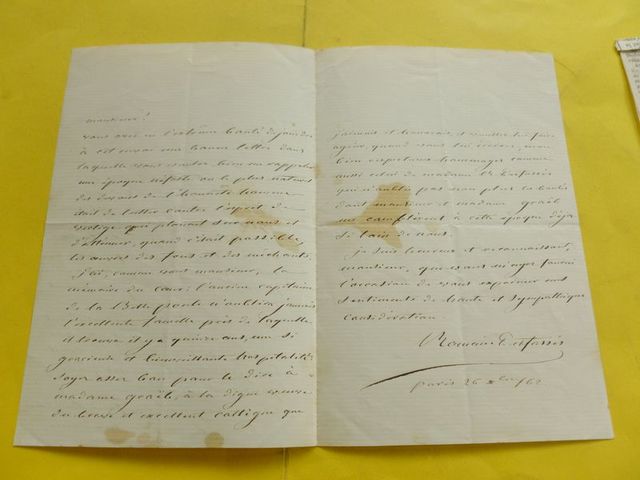 monsieur!
vous avez eu l'extrême bonté de joindre
à cet envoi une bonne lettre dans
laquelle vous voulez bien me rappeler
une époque néfaste où le plus naturel
des devoirs de l'honnête homme
était de lutter contre l'esprit de
vertige qui planait sur nous et
d'atténuer, quand c'était possible,
les œuvres des fous et des méchants.
j'ai, comme vous monsieur, la
mémoire du cœur: l'ancien capitaine
de la Belle poule n'oubliera jamais
l'excellente famille près de laquelle
il trouva il y a quinze ans, une si
gracieuse et bienveillante hospitalité
soyez assez bon pour le dire à
madame à la digne veuve
du brave et excellent que
j'aimais et honorais, et veuillez lui faire
agréer, quand vous lui écrirez, mes
bien respectueux hommages comme
aussi celui de madame Rn Desfossés
qui n'oublie pas non plus les bontés
dont monsieur et madame
nous comblèrent à cette époque déjà
si loin de nous.
je suis heureux et reconnaissant,
monsieur, que vous m'ayez fourni
l'occasion de vous exprimer mes
sentiments de haute et sympathique
considération.
Romain Desfossés
paris 26 xbre /62